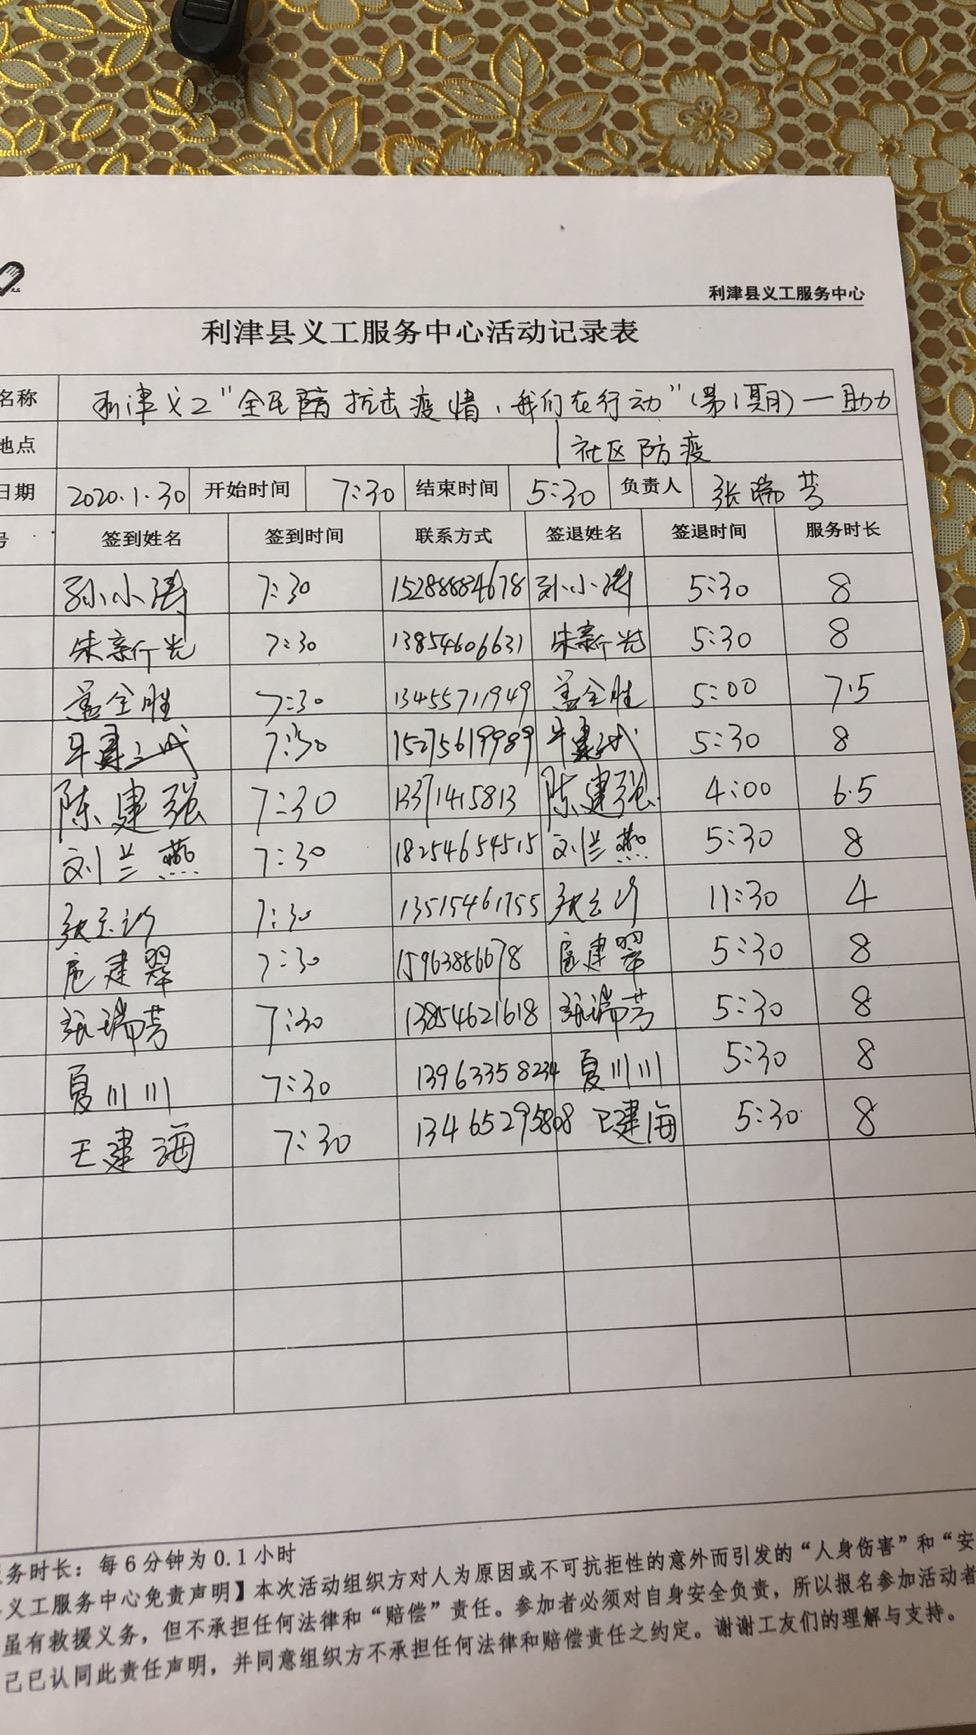 利津县义工服务中心
利津县义工服务中心活动记录表
名称 利津义工"全民防抗击疫情,我们在行动"(第1期)—助力
地点 社区防疫
日期 2020.1.30 开始时间 7:30 结束时间 5:30 负责人 张瑞芳
号 签到姓名 签到时间 联系方式 签退姓名 签退时间 服务时长
孙小涛 7:30 15288884678 孙小涛 5:30 8
朱新光 7:30 13854606631 朱新光 5:30 8
盖全胜 7:30 13455711949 盖全胜 5:00 7.5
7:30 15275619989 5:30 8
陈建强 7:30 13371415813 陈建强 4:00 6.5
刘兰燕 7:30 18254654515 刘兰燕 5:30 8
7:30 13515461755 11:30 4
扈建翠 7:30 15963886678 扈建翠 5:30 8
张瑞芳 7:30 13854621618 张瑞芳 5:30 8
夏川川 7:30 13963358234 夏川川 5:30 8
王建海 7:30 13465295808 王建海 5:30 8
务时长：每6分钟为0.1小时
义工服务中心免责声明】本次活动组织方对人为原因或不可抗拒性的意外而引发的“人身伤害”和“安
虽有救援义务，但不承担任何法律和“赔偿”责任。参加者必须对自身安全负责，所以报名参加活动者
己已认同此责任声明，并同意组织方不承担任何法律和赔偿责任之约定。谢谢工友们的理解与支持。